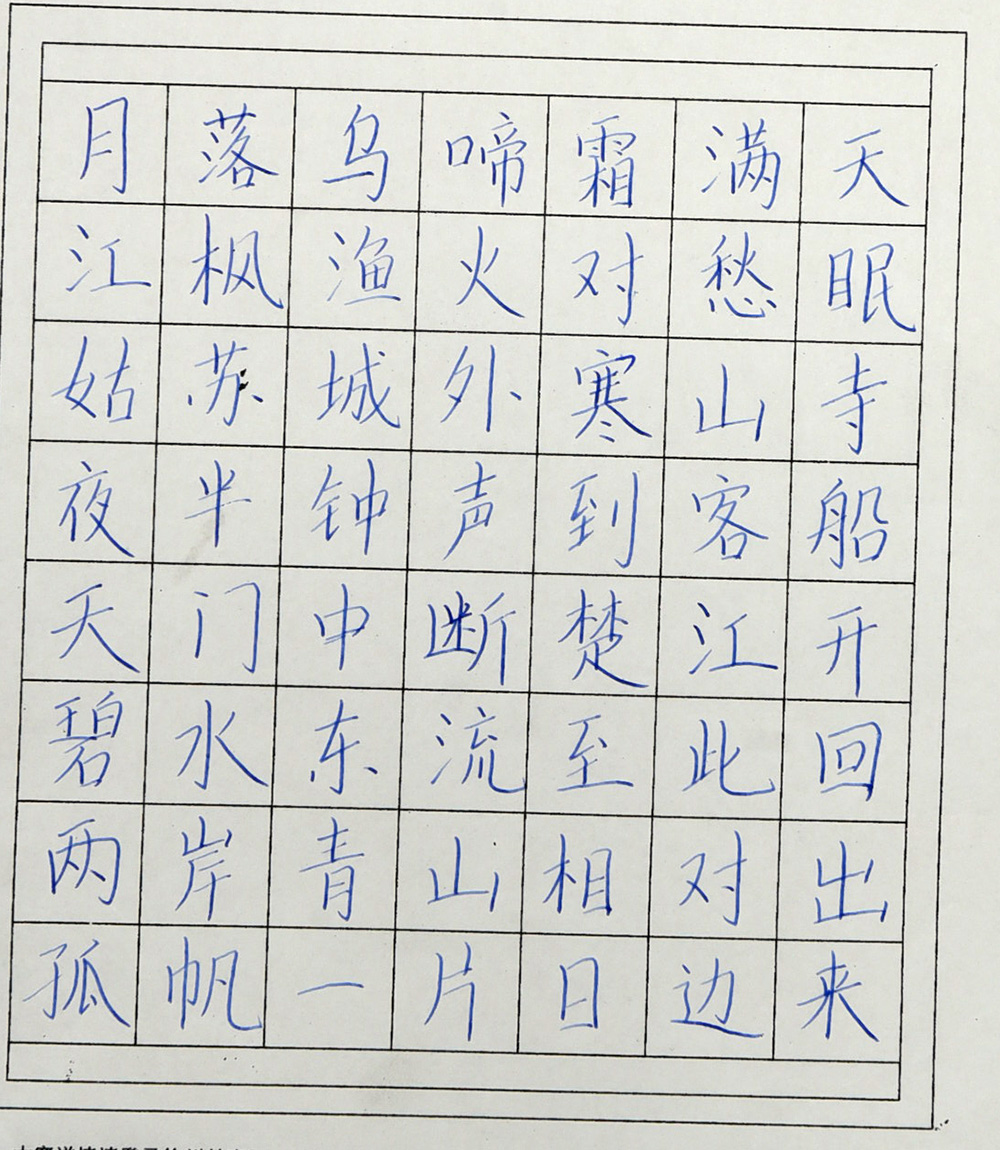 月落乌啼霜满天
江枫渔火对愁眠
姑苏城外寒山寺
夜半钟声到客船
天门中断楚江开
碧水东流至此回
两岸青山相对出
孤帆一片日边来